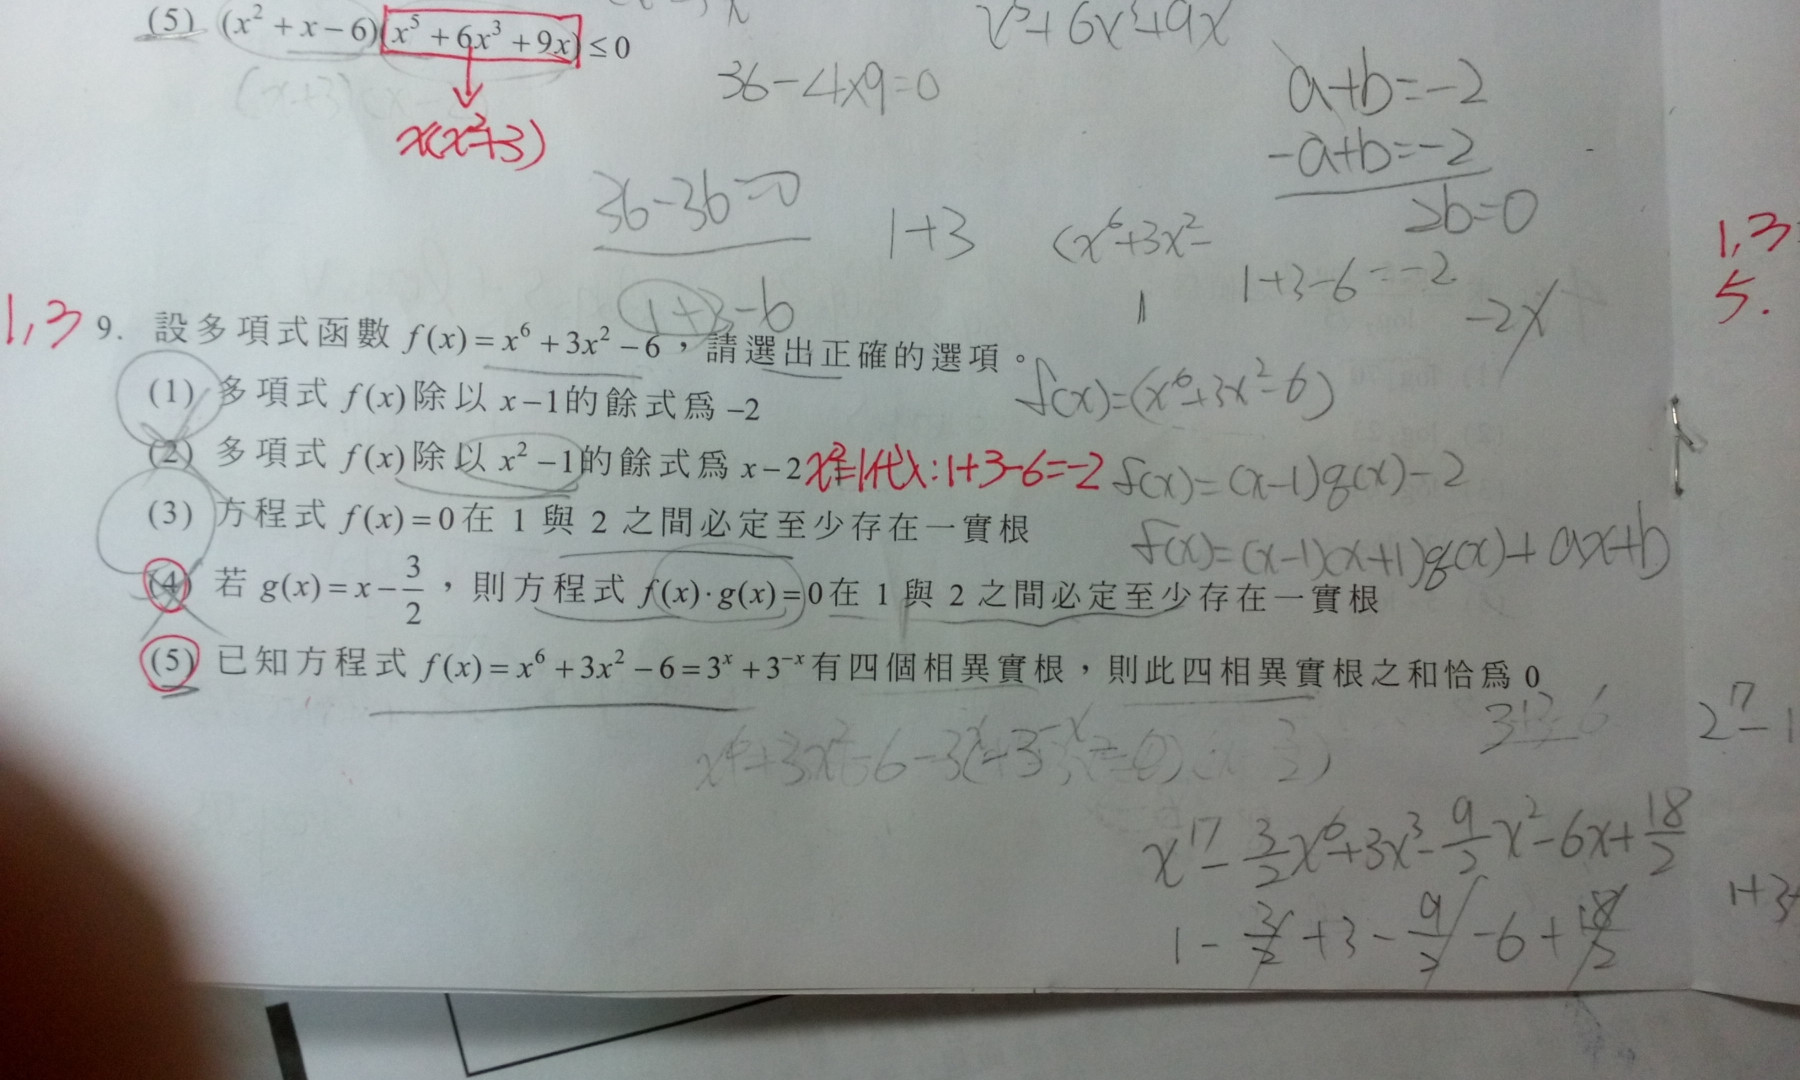 (5) (x² + x − 6)(x⁵ + 6x³ + 9x) ≤ 0
x(x²+3)
x⁵+6x³+9x
36−4×9=0
a+b=−2
−a+b=−2
2b=0
36−36=0
1+3
(x⁶+3x²−
1+3−6=−2
−2x
1+3−6
1,3
1,3
5.
9. 設多項式函數 f(x) = x⁶ + 3x² − 6，請選出正確的選項。
f(x)=(x⁶+3x²−6)
(1) 多項式 f(x) 除以 x−1 的餘式爲 −2
(2) 多項式 f(x) 除以 x² −1 的餘式爲 x−2
x²=1代入:1+3−6=−2
f(x)=(x−1)q(x)−2
(3) 方程式 f(x) = 0 在 1 與 2 之間必定至少存在一實根
f(x)=(x−1)(x+1)q(x)+ax+b
(4) 若 g(x) = x − 3/2，則方程式 f(x)·g(x) = 0 在 1 與 2 之間必定至少存在一實根
(5) 已知方程式 f(x) = x⁶ + 3x² − 6 = 3ˣ + 3⁻ˣ 有四個相異實根，則此四相異實根之和恰爲 0
x¹⁷−3/2x⁶+3x³−9/2x²−6x+18/2
1−3/2+3−9/2−6+18/2